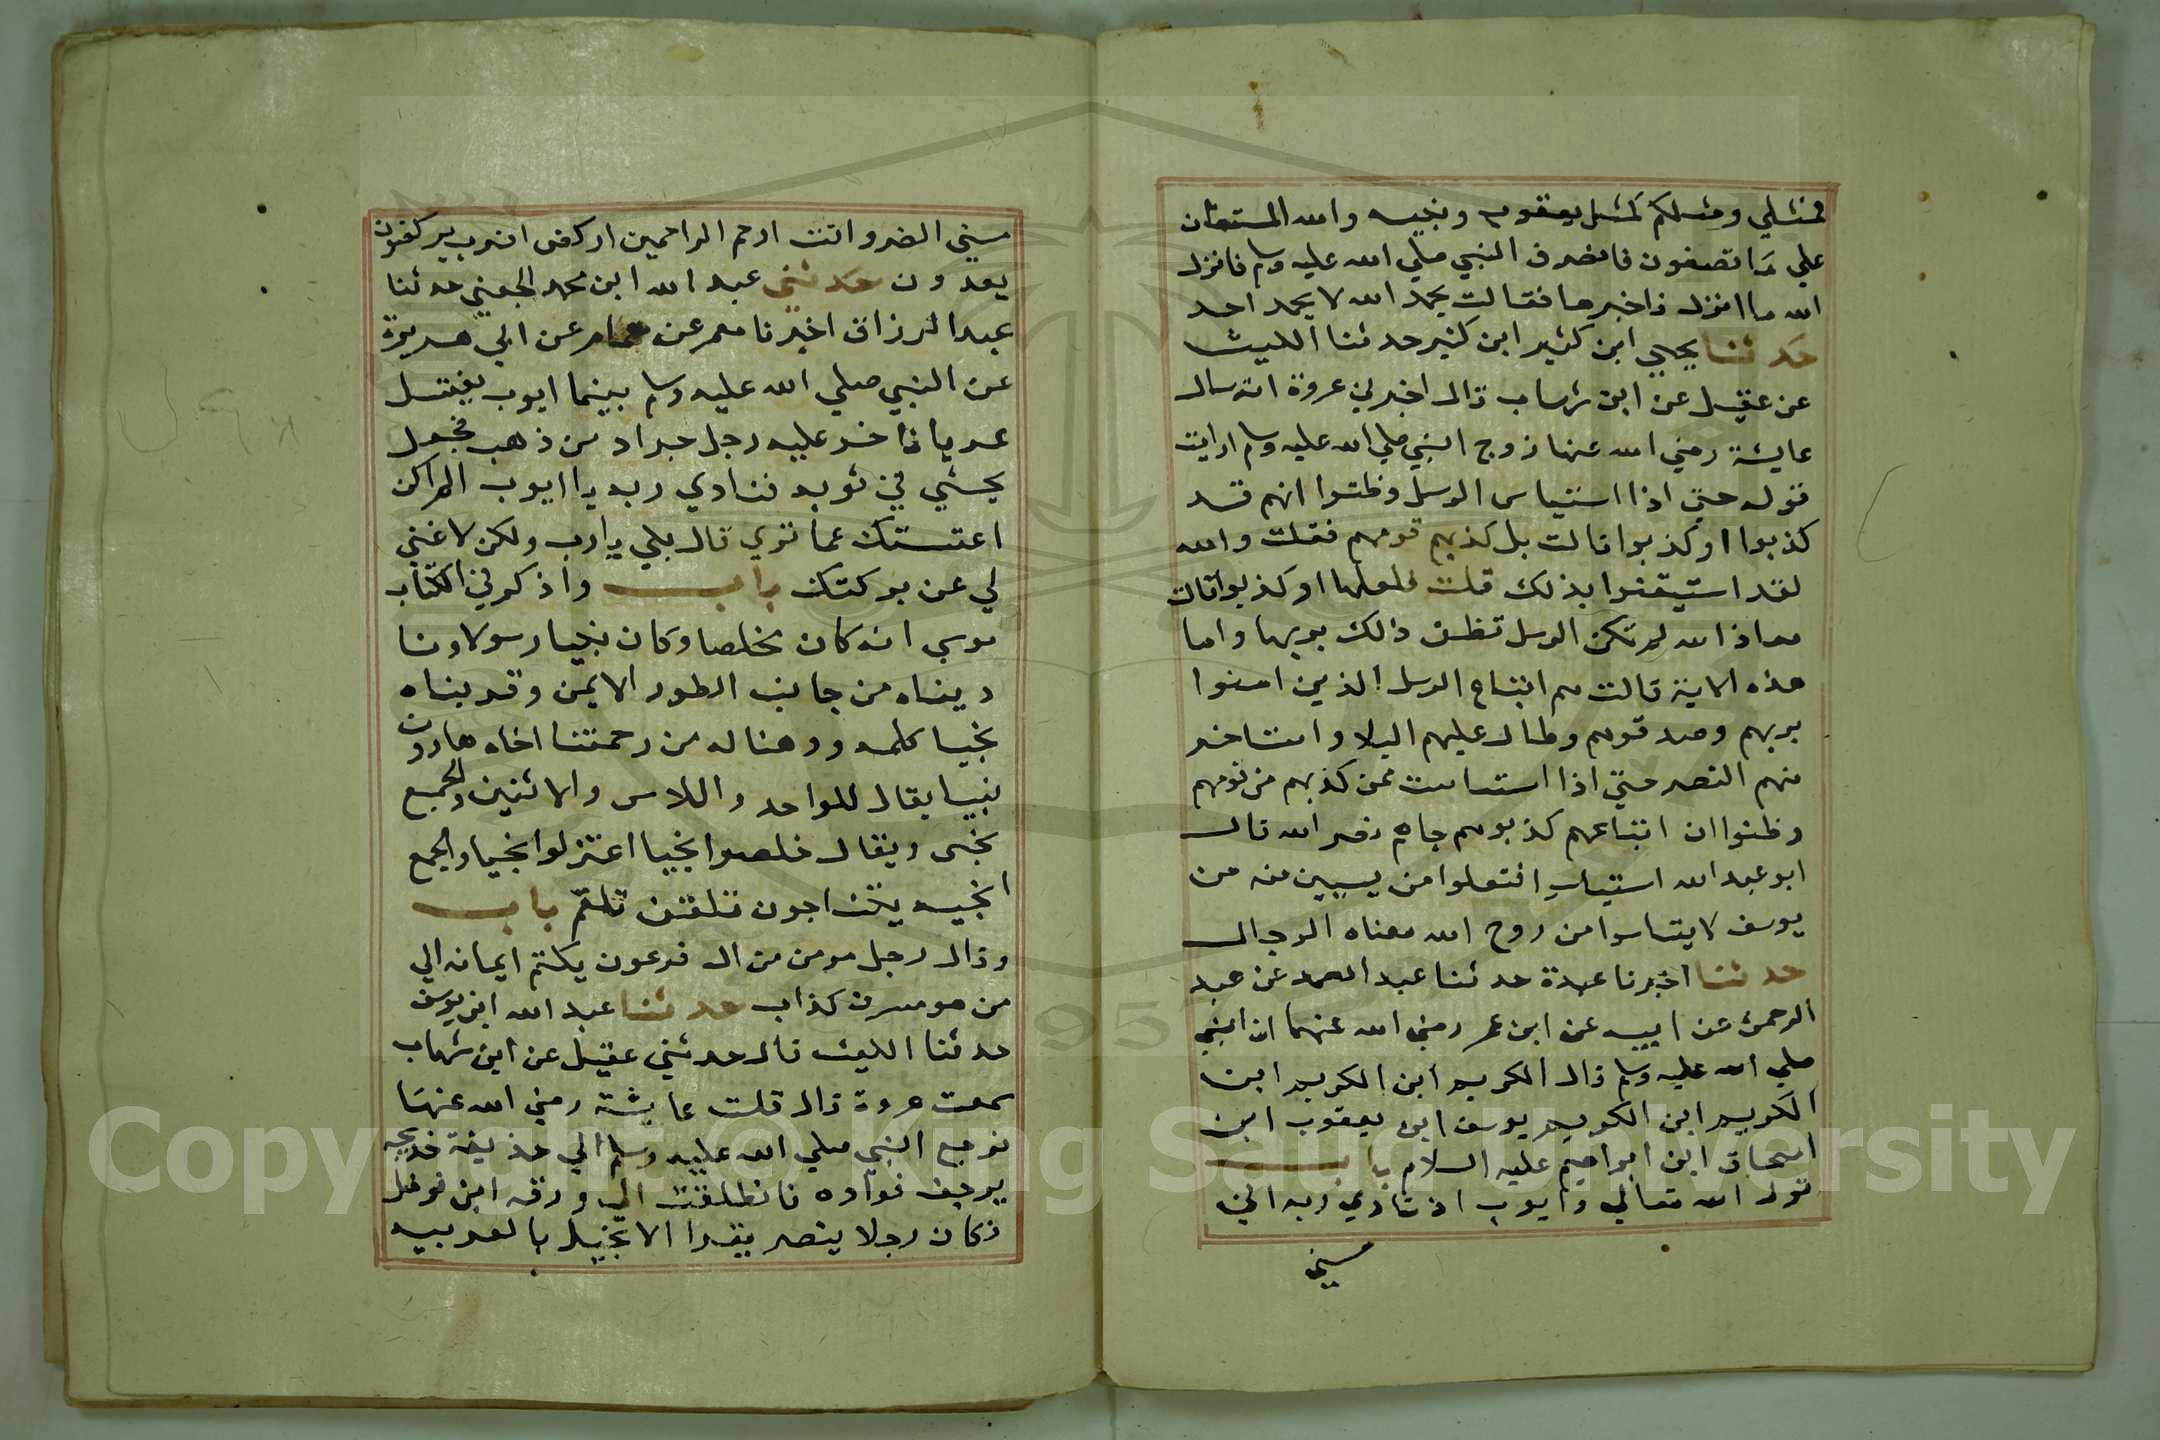 فمثلي ومثلكم كمثل يعقوب وبنيه والله المستعان
علي ما تصفون فانصرف النبي صلي الله عليه وسلم فانزل
الله ما انزل فاخبرها فقالت بحمد الله لا بحمد احد
حدثنا يحيي ابن كثير ابن كثير حدثنا الليث
عن عقيل عن ابن شهاب قال اخبرني عروة انه سال
عايشة رضي الله عنها زوج النبي صلي الله عليه وسلم ارايت
قوله حتي اذا استياس الرسل وظنوا انهم قد
كذبوا او كذبوا قالت بل كذبهم قومهم فقلت والله
لقد استيقنوا بذلك قلت فلعلها او كذبوا قالت
معاذ الله لم تكن الرسل تظن ذالك بربها واما
هذه الاية قالت هم اتباع الرسل الذين امنوا
بربهم وصدقوهم وطال عليهم البلا واستاخر
منهم النصر حتي اذا استياست ممن كذبهم من قومهم
وظنوا ان اتباعهم كذبوهم جاهم نصر الله قال
ابو عبد الله استياس افتعلوا من يييس منه من
يوسف لا يتاسوا من روح الله معناه الرجال
حدثنا اخبرنا عبدة حدثنا عبد الصمد عن عبد
الرحمن عن ابيه عن ابن عمر رضي الله عنهما ان النبي
صلي الله عليه وسلم قال الكريم ابن الكريم ابن
الكريم ابن الكريم يوسف ابن يعقوب ابن
اسحاق ابن ابراهيم عليه السلام باب
قول الله تعالي وايوب اذ نادي ربه اني
مسني
مسني الضر وانت ارحم الراحمين اركض اضرب يركضون
يعدون حدثني عبد الله ابن محمد الجعفي حدثنا
عبد الرزاق اخبرنا معمر عن همام عن ابي هريرة
عن النبي صلي الله عليه وسلم بينما ايوب يغتسل
عريانا خر عليه رجل جراد من ذهب فجعل
يحثي في ثوبه فنادي ربه يا ايوب الم اكن
اغنيتك عما تري قال بلي يارب ولكن لا غني
لي عن بركتك باب واذكر في الكتاب
موسي انه كان مخلصا وكان نبيا رسولا ونا
ديناه من جانب الطور الايمن وقربناه
نجيا كلمه ووهبنا له من رحمتنا اخاه هارون
نبيا يقال للواحد واللاس والاثنين والجميع
نجي ويقال خلصوا نجيا اعتزلوا نجيا والجمع
انجيه يتناجون تلقف تلقم باب
وقال رجل مومن من ال فرعون يكتم ايمانه الي
من هو مسرف كذاب حدثنا عبد الله ابن يوسف
حدثنا الليث قال حدثني عقيل عن ابن شهاب
سمعت عروة قال قلت عايشة رضي الله عنها
فرجع النبي صلي الله عليه وسلم الي خديجة
يرجف فواده فانطلقت الي ورقه ابن نوفل
فكان رجلا ينصر يقرا الانجيل بالعربيه
Copyright © King Saud University